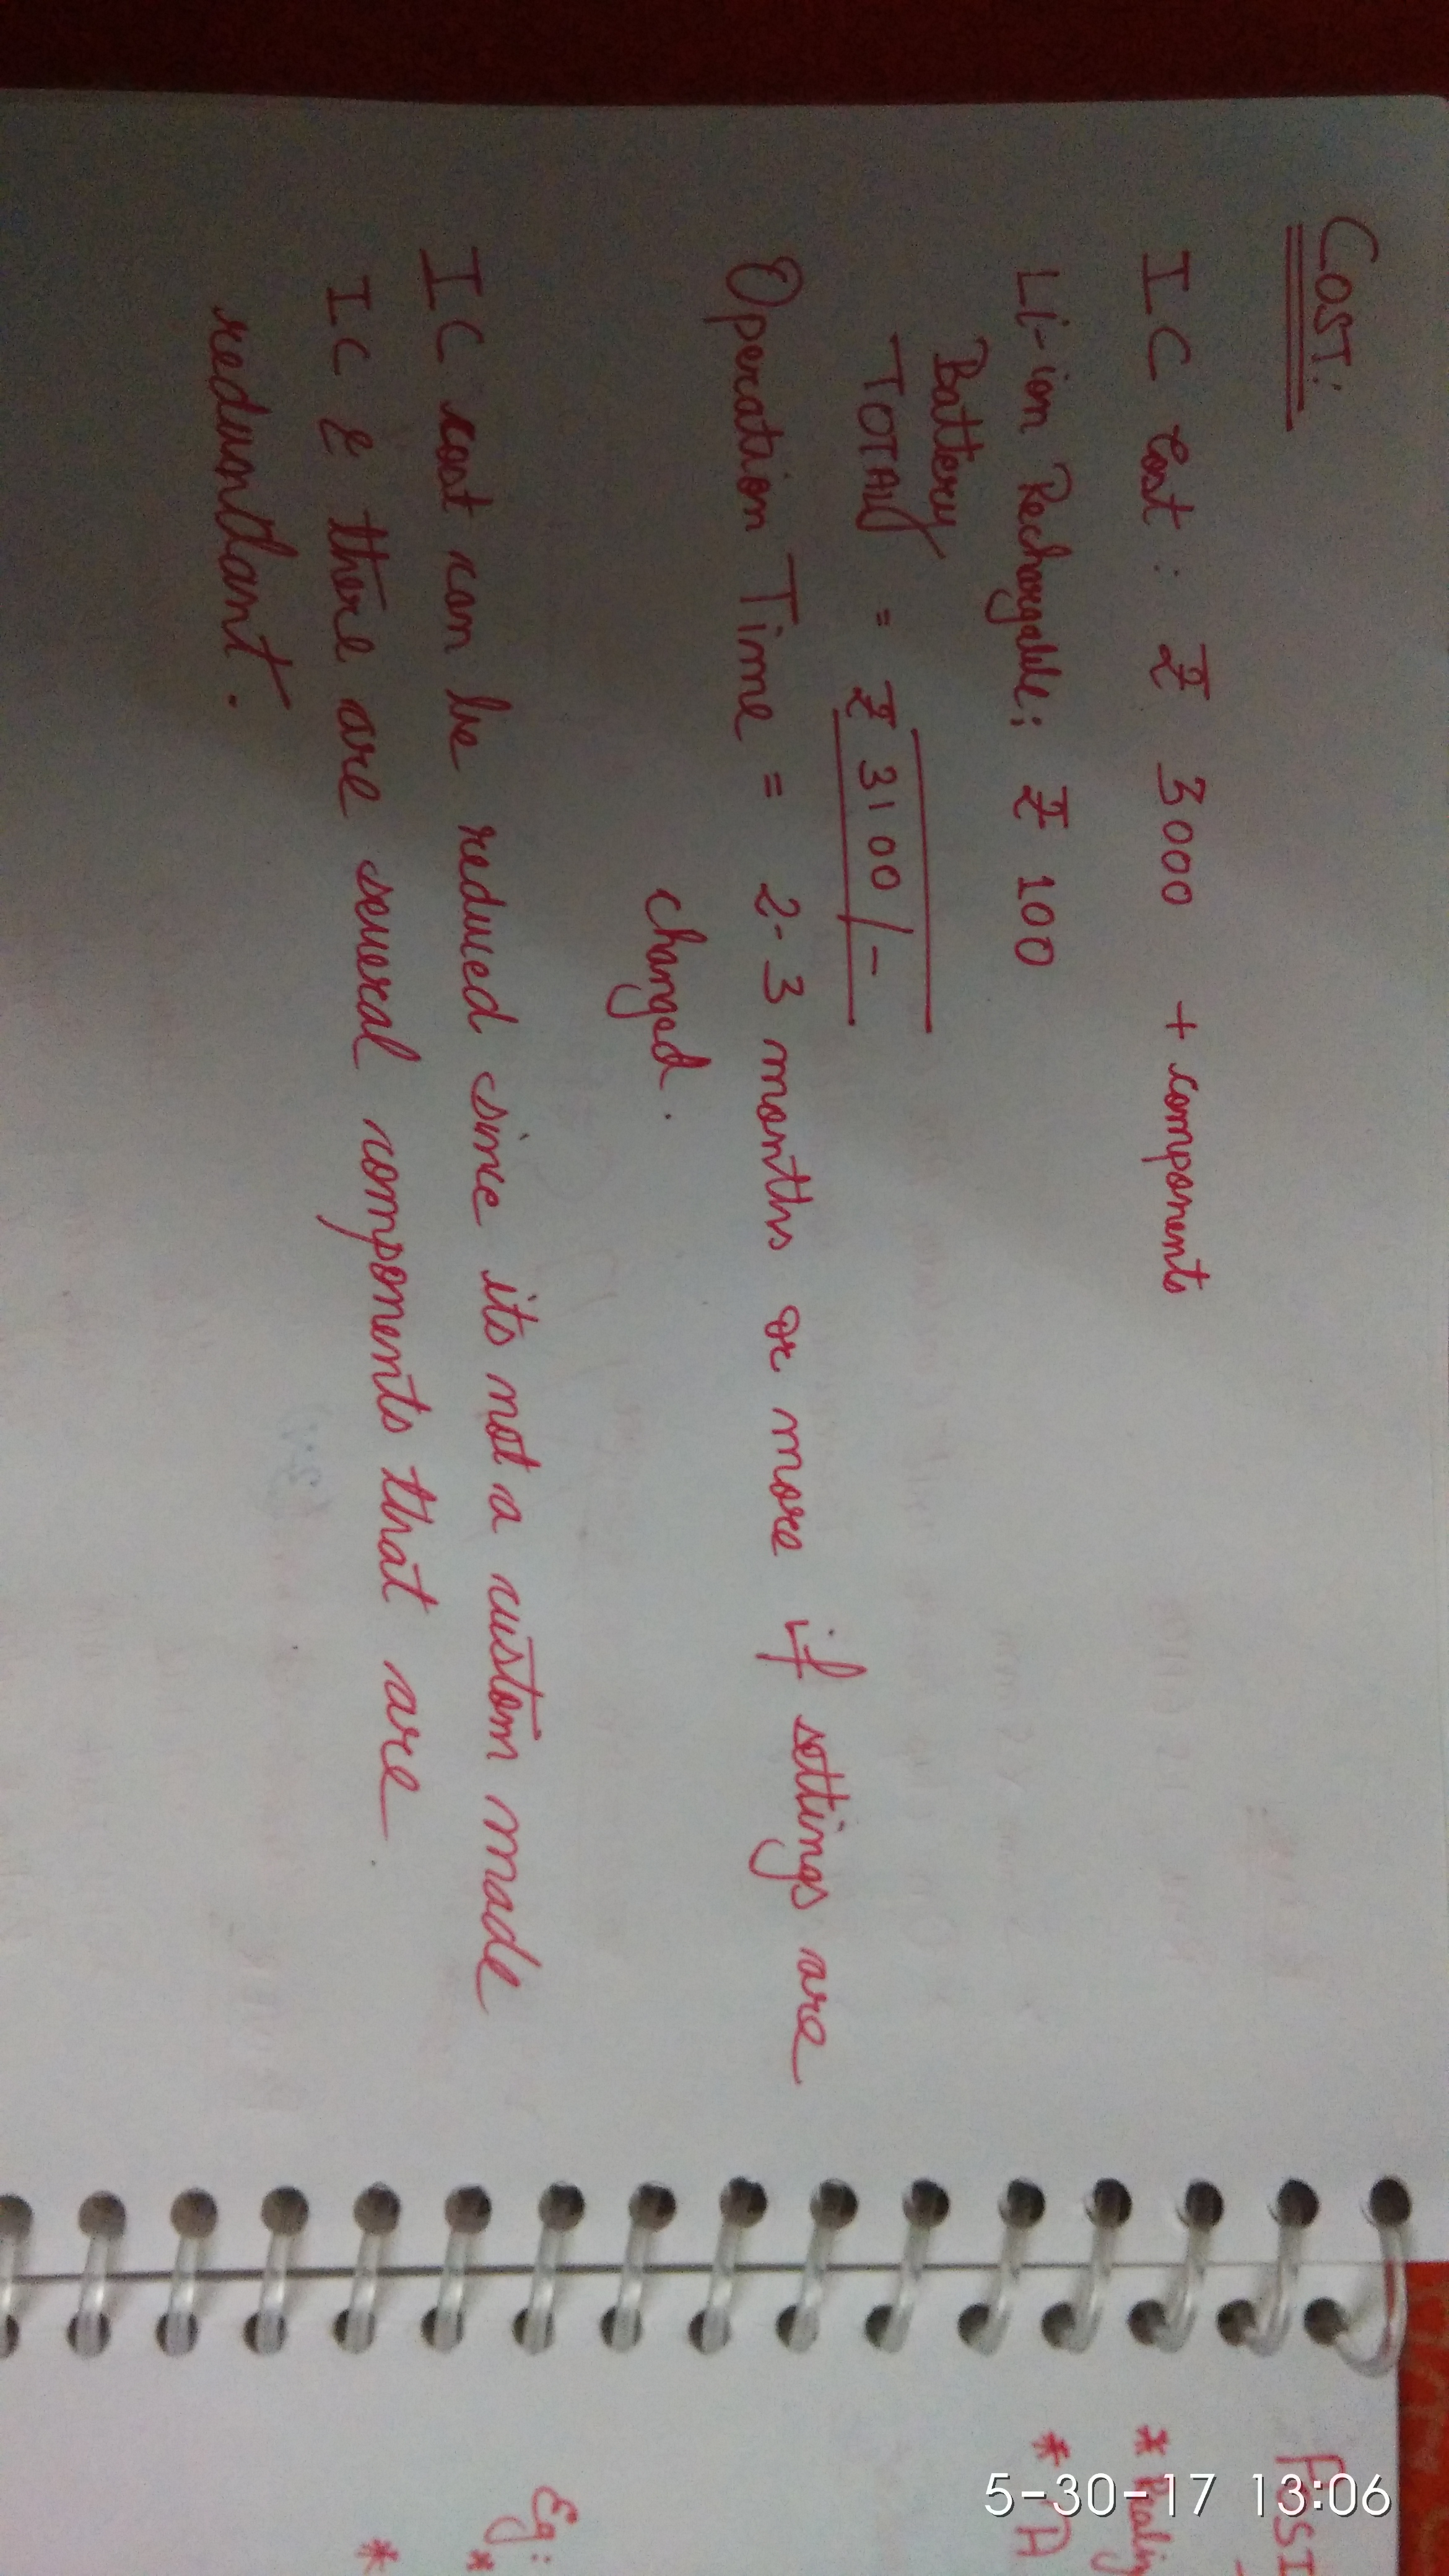 COST:
IC Cost: ₹ 3000 + components
Li-ion Rechargable: ₹ 100
Battery
TOTAL = ₹ 3100/-
Operation Time = 2-3 months or more if settings are
changed.
IC cost can be reduced since its not a custom made
IC & there are several components that are
redundant.
Eg:
5-30-17 13:06